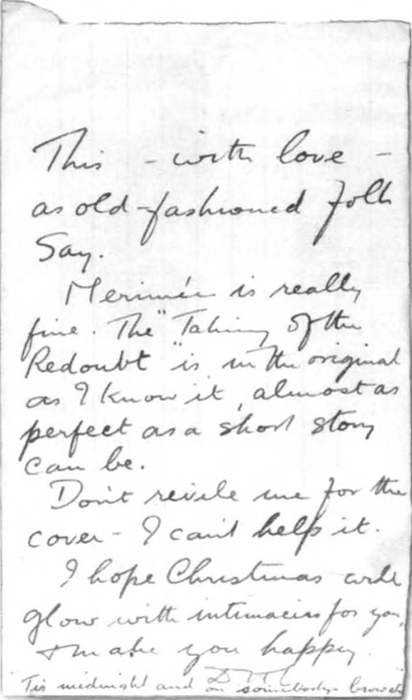 This - with love -
as old-fashioned folk
Say.
Merimée is really
fine. The "Taking of the
Redoubt" is in the original
as I know it, almost as
perfect as a short story
can be.
Don't revile me for the
cover - I can't help it.
I hope Christmas will
glow with intimacies for you,
& make you happy.
DHL
"'Tis midnight and on somebody's brower"